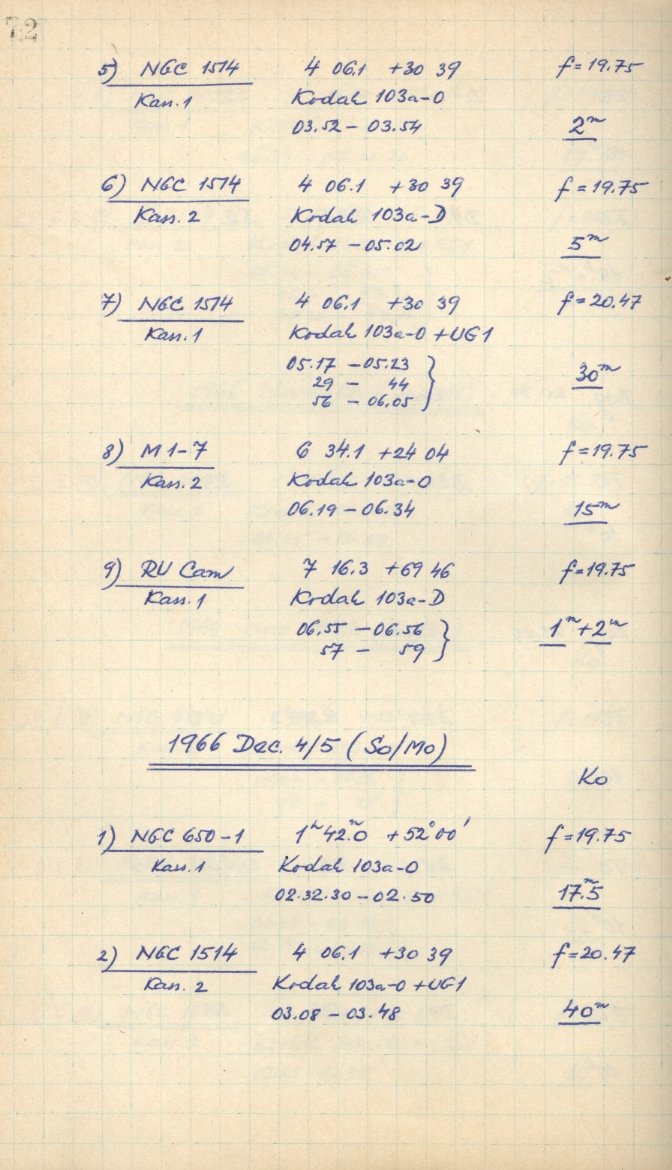 72
5) NGC 1514 4 06.1 +30 39 f=19.75
Kass.1 Kodak 103a-O
03.52 – 03.54 2ᵐ
6) NGC 1514 4 06.1 +30 39 f=19.75
Kass.2 Kodak 103a-D
04.57 – 05.02 5ᵐ
7) NGC 1514 4 06.1 +30 39 f=20.47
Kass.1 Kodak 103a-O +UG1
05.17 – 05.23
29 – 44 } 30ᵐ
56 – 06.05
8) M 1-7 6 34.1 +24 04 f=19.75
Kass.2 Kodak 103a-O
06.19 – 06.34 15ᵐ
9) RU Cam 7 16.3 +69 46 f=19.75
Kass.1 Kodak 103a-D
06.55 – 06.56 } 1ᵐ+2ᵐ
57 – 59
1966 Dec. 4/5 (So/Mo)
Ko
1) NGC 650-1 1ʰ42ᵐ.0 +52°00' f=19.75
Kass.1 Kodak 103a-O
02.32.30 – 02.50 17ᵐ.5
2) NGC 1514 4 06.1 +30 39 f=20.47
Kass.2 Kodak 103a-O +UG1
03.08 – 03.48 40ᵐ